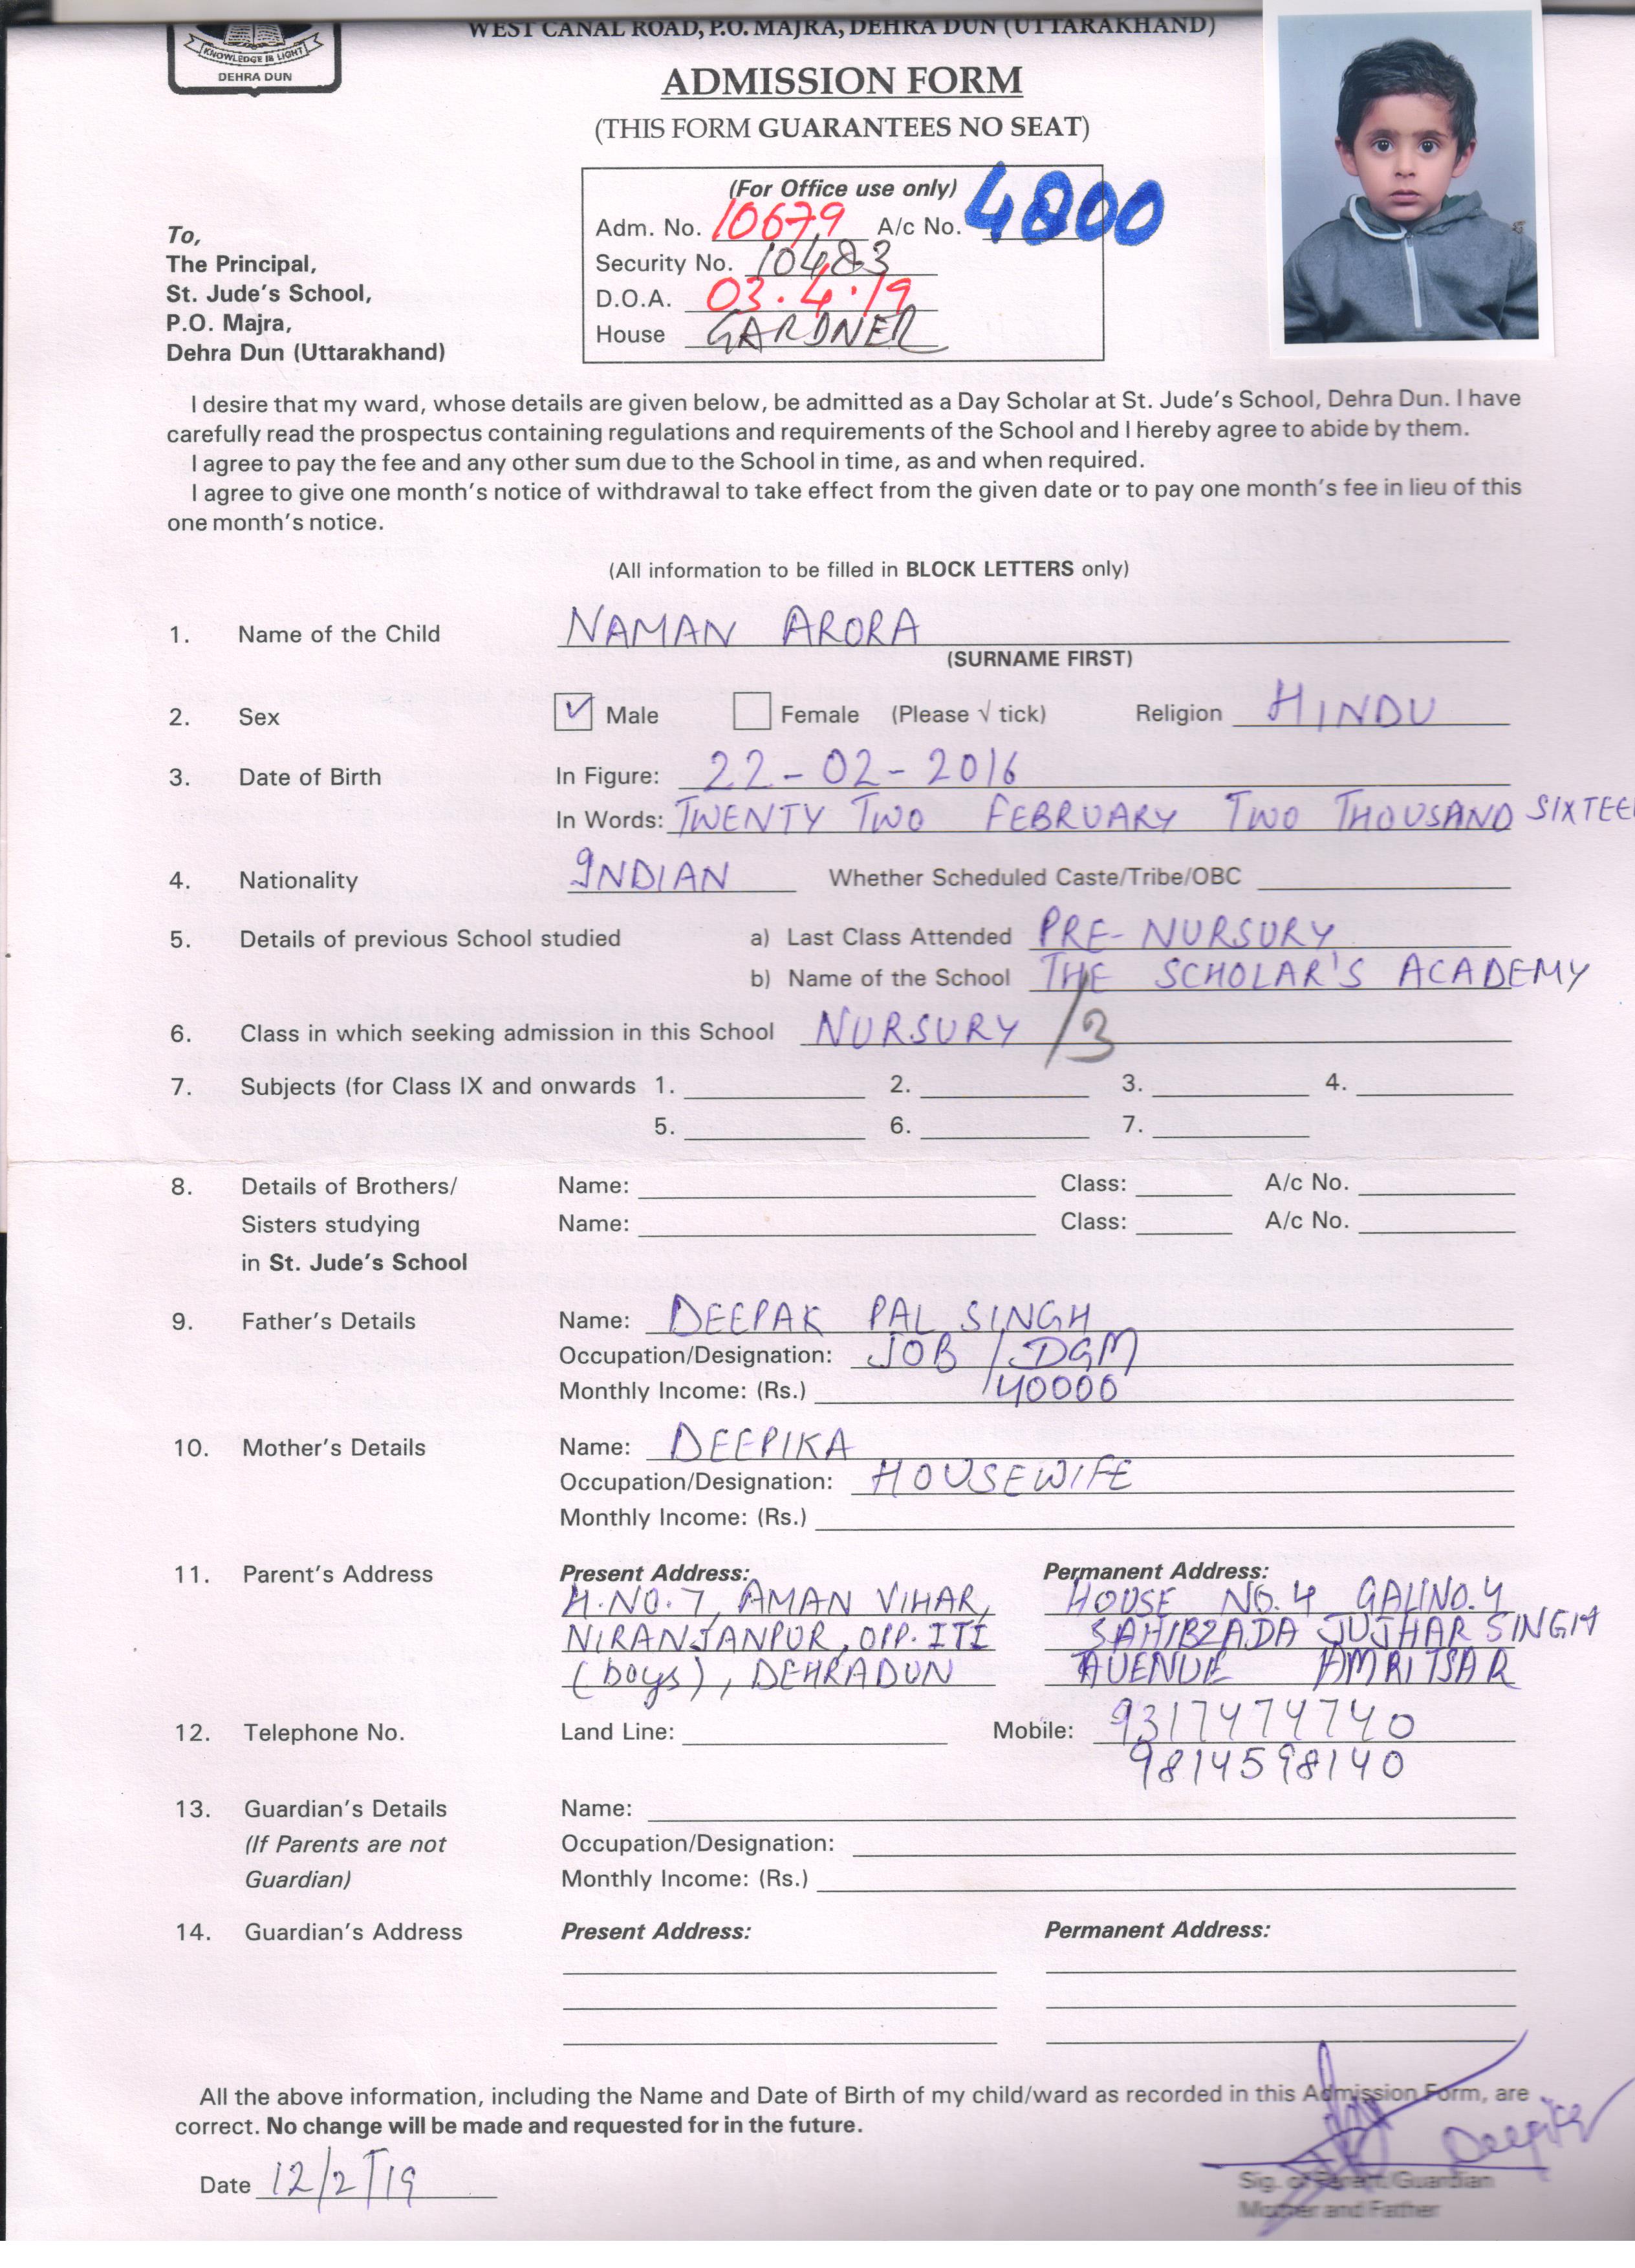 WEST CANAL ROAD, P.O. MAJRA, DEHRA DUN (UTTARAKHAND)
KNOWLEDGE IS LIGHT
DEHRA DUN
ADMISSION FORM
(THIS FORM GUARANTEES NO SEAT)
(For Office use only)
Adm. No. 10679 A/c No. 4800
Security No. 10483
D.O.A. 03.4.19
House GARDNER
To,
The Principal,
St. Jude's School,
P.O. Majra,
Dehra Dun (Uttarakhand)
I desire that my ward, whose details are given below, be admitted as a Day Scholar at St. Jude's School, Dehra Dun. I have
carefully read the prospectus containing regulations and requirements of the School and I hereby agree to abide by them.
I agree to pay the fee and any other sum due to the School in time, as and when required.
I agree to give one month's notice of withdrawal to take effect from the given date or to pay one month's fee in lieu of this
one month's notice.
(All information to be filled in BLOCK LETTERS only)
1. Name of the Child NAMAN ARORA
(SURNAME FIRST)
2. Sex ✓ Male Female (Please √ tick) Religion HINDU
3. Date of Birth In Figure: 22-02-2016
In Words: TWENTY TWO FEBRUARY TWO THOUSAND SIXTEE
4. Nationality INDIAN Whether Scheduled Caste/Tribe/OBC
5. Details of previous School studied a) Last Class Attended PRE-NURSURY
b) Name of the School THE SCHOLAR'S ACADEMY
6. Class in which seeking admission in this School NURSURY /3
7. Subjects (for Class IX and onwards 1. 2. 3. 4.
5. 6. 7.
8. Details of Brothers/ Name: Class: A/c No.
Sisters studying Name: Class: A/c No.
in St. Jude's School
9. Father's Details Name: DEEPAK PAL SINGH
Occupation/Designation: JOB / DGM
Monthly Income: (Rs.) 40000
10. Mother's Details Name: DEEPIKA
Occupation/Designation: HOUSEWIFE
Monthly Income: (Rs.)
11. Parent's Address Present Address: Permanent Address:
H.NO.7, AMAN VIHAR, HOUSE NO.4 GALINO.4
NIRANJANPUR, OPP. ITI SAHIBZADA JUJHAR SINGH
(boys), DEHRADUN AVENUE AMRITSAR
12. Telephone No. Land Line: Mobile: 9317474740
9814598140
13. Guardian's Details Name:
(If Parents are not Occupation/Designation:
Guardian) Monthly Income: (Rs.)
14. Guardian's Address Present Address: Permanent Address:
All the above information, including the Name and Date of Birth of my child/ward as recorded in this Admission Form, are
correct. No change will be made and requested for in the future.
Deepika
Date 12/2/19
Sig. of Parent/Guardian
Mother and Father